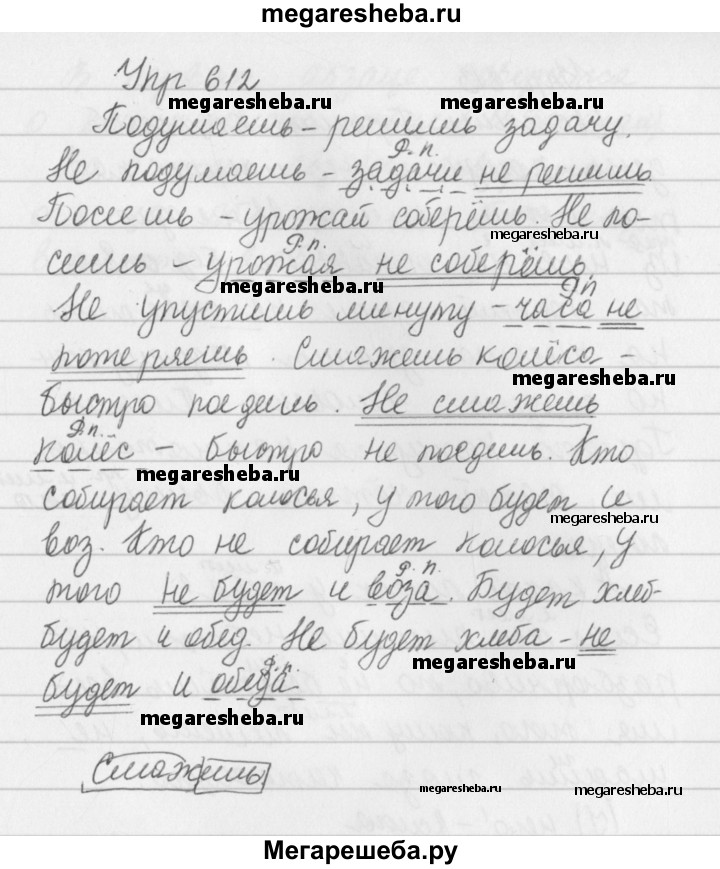 megaresheba.ru
Упр 612
megaresheba.ru megaresheba.ru
Подумаешь – решишь задачу.
Р.п.
Не подумаешь – задачи не решишь
Посеешь – урожай соберёшь. Не по-
megaresheba.ru
Р.п.
сеешь – урожая не соберёшь.
megaresheba.ru
Р.п
Не упустишь минуту – часа не
потеряешь. Смажешь колёса –
megaresheba.ru
быстро поедешь. Не смажешь
Р.п.
колёс – быстро не поедешь. Кто
megaresheba.ru
собирает колосья, у того будет и
megaresheba.ru
воз. Кто не собирает колосья, у
Р.п.
того не будет и воза. Будет хлеб-
будет и обед. Не будет хлеба – не
megaresheba.ru
Р.п.
будет и обеда.
megaresheba.ru
Смажешь
megaresheba.ru megaresheba.ru
Мегарешеба.ру